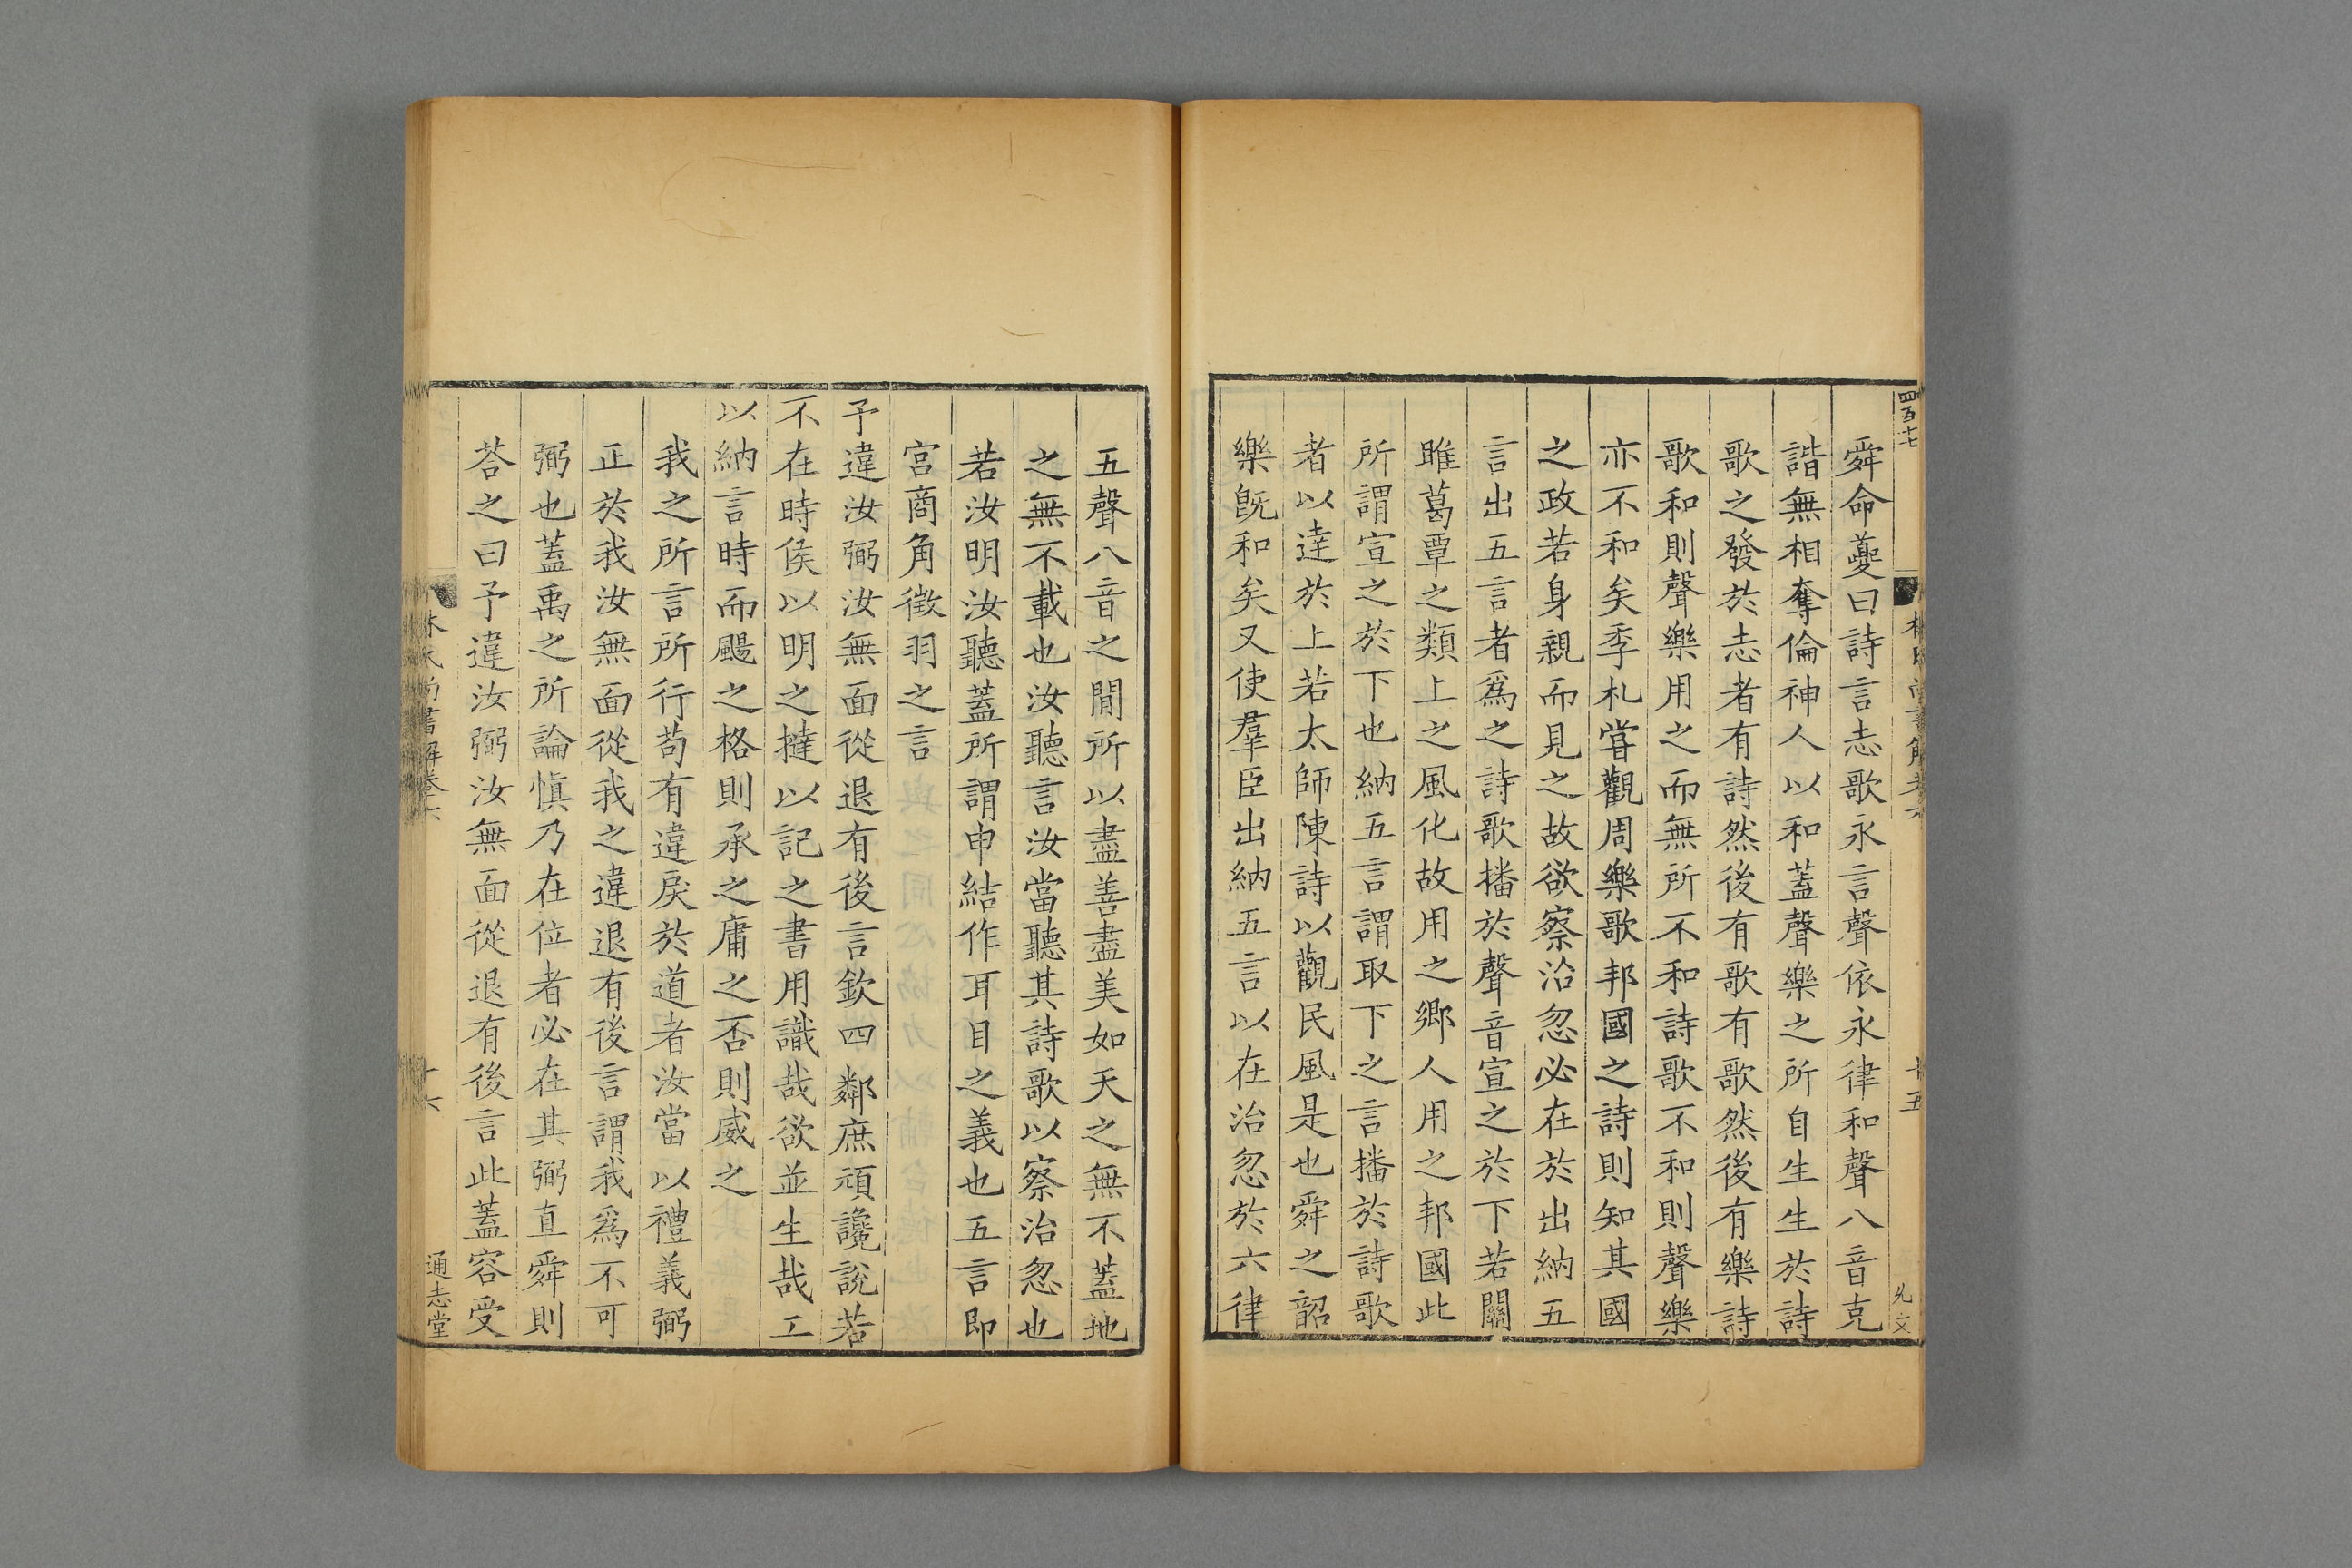 四百十七
舜命夔曰詩言志歌永言聲依永律和聲八音克
諧無相奪倫神人以和蓋聲樂之所自生生於詩
歌之發於志者有詩然後有歌有歌然後有樂詩
歌和則聲樂用之而無所不和詩歌不和則聲樂
亦不和矣季札嘗觀周樂歌邦國之詩則知其國
之政若身親而見之故欲察治忽必在於出納五
言出五言者爲之詩歌播於聲音宣之於下若關
雎葛覃之類上之風化故用之鄉人用之邦國此
所謂宣之於下也納五言謂取下之言播於詩歌
者以達於上若太師陳詩以觀民風是也舜之韶
樂旣和矣又使羣臣出納五言以在治忽於六律
五聲八音之閒所以盡善盡美如天之無不蓋地
之無不載也汝聽言汝當聽其詩歌以察治忽也
若汝明汝聽蓋所謂申結作耳目之義也五言即
宮商角徵羽之言
予違汝弼汝無面從退有後言欽四鄰庶頑讒說若
不在時侯以明之撻以記之書用識哉欲並生哉工
以納言時而颺之格則承之庸之否則威之
我之所言所行苟有違戾於道者汝當以禮義弼
正於我汝無面從我之違退有後言謂我爲不可
弼也蓋禹之所論愼乃在位者必在其弼直舜則
荅之曰予違汝弼汝無面從退有後言此蓋容受
林氏尚書解卷六
十六
通志堂